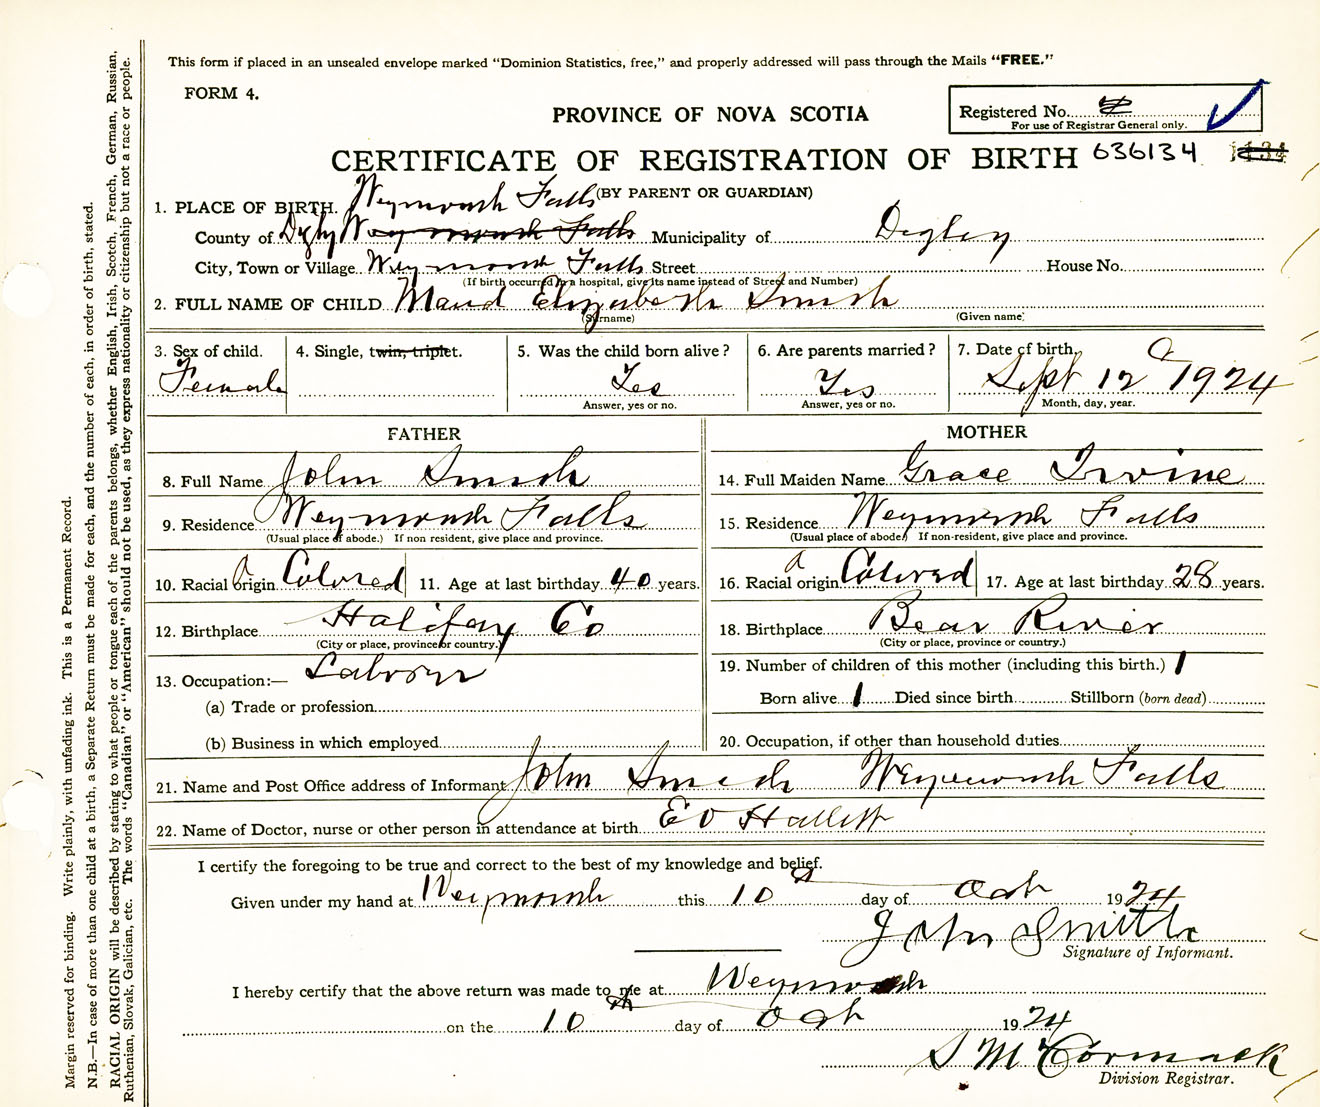 This form if placed in an unsealed envelope marked "Dominion Statistics, free," and properly addressed will pass through the Mails "FREE."
FORM 4.
PROVINCE OF NOVA SCOTIA
Registered No.
For use of Registrar General only.
CERTIFICATE OF REGISTRATION OF BIRTH 636134
(BY PARENT OR GUARDIAN)
1. PLACE OF BIRTH. Weymouth Falls
County of Digby Weymouth Falls Municipality of Digby
City, Town or Village Weymouth Falls Street House No.
(If birth occurred in a hospital, give its name instead of Street and Number)
2. FULL NAME OF CHILD Maud Elizabeth Smith
(Surname) (Given name)
3. Sex of child. Female
4. Single, twin, triplet.
5. Was the child born alive? Yes
Answer, yes or no.
6. Are parents married? Yes
Answer, yes or no.
7. Date of birth. Sept 12 1924
Month, day, year.
FATHER
8. Full Name John Smith
9. Residence Weymouth Falls
(Usual place of abode.) If non resident, give place and province.
10. Racial origin Colored 11. Age at last birthday 40 years.
12. Birthplace Halifax Co
(City or place, province or country.)
13. Occupation:— Labourer
(a) Trade or profession
(b) Business in which employed
MOTHER
14. Full Maiden Name Grace Irvine
15. Residence Weymouth Falls
(Usual place of abode) If non-resident, give place and province.
16. Racial origin Colored 17. Age at last birthday 28 years.
18. Birthplace Bear River
(City or place, province or country.)
19. Number of children of this mother (including this birth.) 1
Born alive 1 Died since birth Stillborn (born dead)
20. Occupation, if other than household duties
21. Name and Post Office address of Informant John Smith Weymouth Falls
22. Name of Doctor, nurse or other person in attendance at birth E D Hallett
I certify the foregoing to be true and correct to the best of my knowledge and belief.
Given under my hand at Weymouth this 10th day of Oct 1924
John Smith
Signature of Informant.
I hereby certify that the above return was made to me at Weymouth
on the 10th day of Oct 1924
S McCormack
Division Registrar.
Margin reserved for binding. Write plainly, with unfading ink. This is a Permanent Record.
N.B.—In case of more than one child at a birth, a Separate Return must be made for each, and the number of each, in order of birth, stated.
RACIAL ORIGIN will be described by stating to what people or tongue each of the parents belongs, whether English, Irish, Scotch, French, German, Russian,
Ruthenian, Slovak, Galician, etc. The words "Canadian" or "American" should not be used, as they express nationality or citizenship but not a race or people.